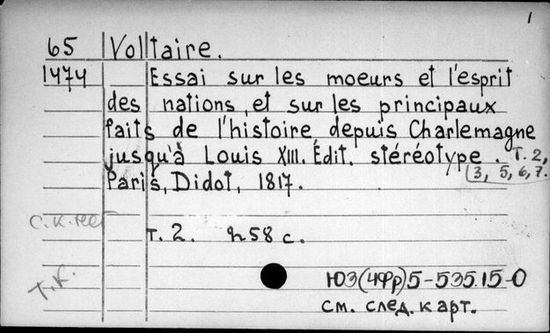 1
65 Voltaire.
1474 Essai sur les moeurs et l'esprit
des nations, et sur les principaux
faits de l'histoire depuis Charlemagne
jusqu'à Louis XIII. Édit. stéréotype. Т. 2,
3, 5, 6, 7.
Paris, Didot, 1817.
С. К. нет
т. 2. 258 с.
Т. К.
ЮЗ(4Фр)5-535.15-0
см. след. карт.